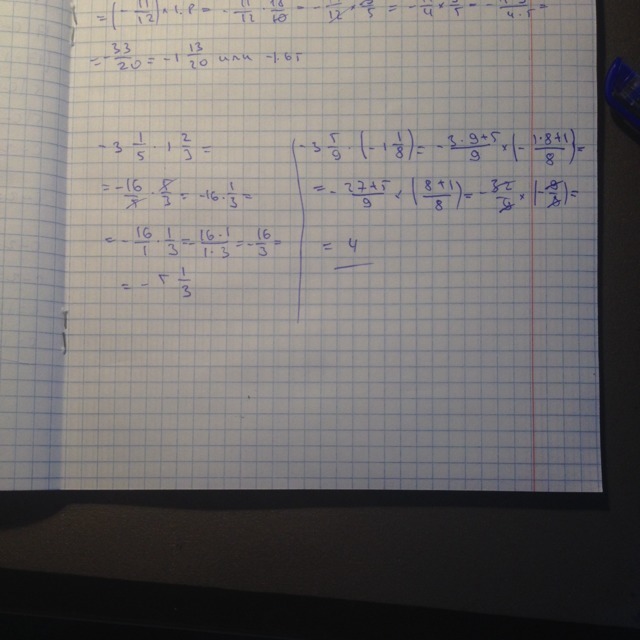 = (-11/12) × 1.8 = -11/12 · 18/10 = -11/12 × 9/5 = -11/4 × 3/5 = -11·3/4·5 =
= -33/20 = -1 13/20 или -1.65
-3 1/5 · 1 2/3 =
= -16/5 · 5/3 = -16 · 1/3 =
= -16/1 · 1/3 = 16·1/1·3 = -16/3 =
= -5 1/3
-3 5/9 · (-1 1/8) = -3·9+5/9 × (-1·8+1/8) =
= -27+5/9 × (8+1/8) = -32/9 × (-9/8) =
= 4